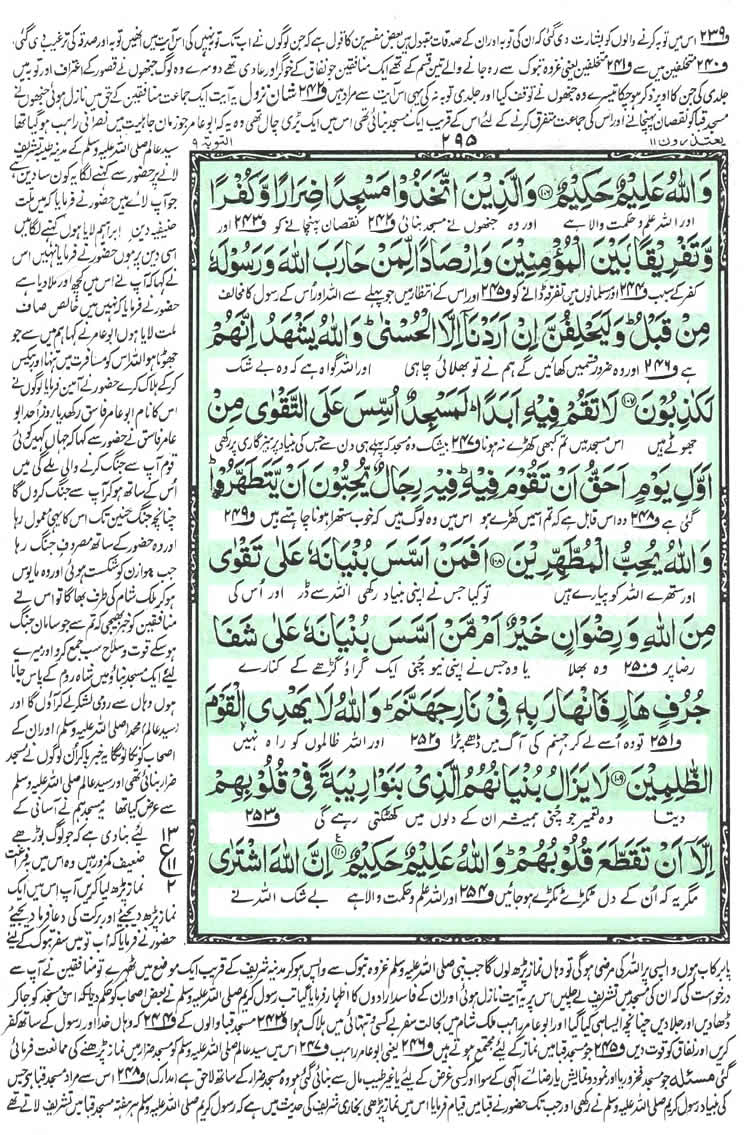 و۲۳۹ اس میں توبہ کرنے والوں کو بشارت دی گئی کہ ان کی توبہ اور ان کے صدقات مقبول ہیں بعض مفسرین کا قول ہے کہ جن لوگوں نے اب تک توبہ نہیں کی اس آیت میں انھیں توبہ اور صدقہ کی ترغیب دی گئی
و۲۴۰ متخلفین میں سے و۲۴۱ متخلفین یعنی غزوہ تبوک سے رہ جانے والے تین قسم کے تھے ایک منافقین جو نفاق کے خوگر اور عادی تھے دوسرے وہ لوگ جنھوں نے قصور کے اعتراف اور توبہ میں
جلدی کی جن کا اوپر ذکر ہو چکا تیسرے وہ جنھوں نے توقف کیا اور جلدی توبہ نہ کی یہی اس آیت سے مراد ہیں و۲۴۲ شان نزول یہ آیت ایک جماعت منافقین کے حق میں نازل ہوئی جنھوں نے
مسجد قبا کو نقصان پہنچانے اور اس کی جماعت متفرق کرنے کے لئے اس کے قریب ایک مسجد بنائی تھی اس میں ایک بڑی چال تھی وہ یہ کہ ابو عامر جو زمانہ جاہلیت میں نصرانی راہب ہو گیا تھا
یعتذرون ۱۱
۲۹۵
التوبۃ ۹
وَاللّٰهُ عَلِيْمٌ حَكِيْمٌ ۝۱۰۶ وَالَّذِيْنَ اتَّخَذُوْا مَسْجِدًا ضِرَارًا وَّكُفْرًا
اور اللہ علم و حکمت والا ہے اور وہ جنھوں نے مسجد بنائی و۲۴۲ نقصان پہنچانے کو و۲۴۳ اور
وَّتَفْرِيْقًۢا بَيْنَ الْمُؤْمِنِيْنَ وَاِرْصَادًا لِّمَنْ حَارَبَ اللّٰهَ وَرَسُوْلَهٗ
کفر کے سبب و۲۴۴ اور مسلمانوں میں تفرقہ ڈالنے کو و۲۴۵ اور اس کے انتظار میں جو پہلے سے اللہ اور اُس کے رسول کا مخالف
مِنْ قَبْلُ ؕ وَلَيَحْلِفُنَّ اِنْ اَرَدْنَاۤ اِلَّا الْحُسْنٰى ؕ وَاللّٰهُ يَشْهَدُ اِنَّهُمْ
ہے و۲۴۶ اور وہ ضرور قسمیں کھائیں گے ہم نے تو بھلائی چاہی اور اللہ گواہ ہے کہ وہ بے شک
لَكٰذِبُوْنَ ۝۱۰۷ لَا تَقُمْ فِيْهِ اَبَدًا ؕ لَمَسْجِدٌ اُسِّسَ عَلَى التَّقْوٰى مِنْ
جھوٹے ہیں اس مسجد میں تم کبھی کھڑے نہ ہونا و۲۴۷ بیشک وہ مسجد کہ پہلے ہی دن سے جس کی بنیاد پرہیزگاری پر رکھی
اَوَّلِ يَوْمٍ اَحَقُّ اَنْ تَقُوْمَ فِيْهِ ؕ فِيْهِ رِجَالٌ يُّحِبُّوْنَ اَنْ يَّتَطَهَّرُوْا ؕ
گئی ہے و۲۴۸ وہ اس قابل ہے کہ تم اس میں کھڑے ہو اس میں وہ لوگ ہیں کہ خوب ستھرا ہونا چاہتے ہیں و۲۴۹
وَاللّٰهُ يُحِبُّ الْمُطَّهِّرِيْنَ ۝۱۰۸ اَفَمَنْ اَسَّسَ بُنْيَانَهٗ عَلٰى تَقْوٰى
اور ستھرے اللہ کو پیارے ہیں تو کیا جس نے اپنی بنیاد رکھی اللہ سے ڈر اور اُس کی
مِنَ اللّٰهِ وَرِضْوَانٍ خَيْرٌ اَمْ مَّنْ اَسَّسَ بُنْيَانَهٗ عَلٰى شَفَا
رضا پر و۲۵۰ وہ بھلا یا وہ جس نے اپنی نیو چنی ایک گراؤ گڑھے کے کنارے
جُرُفٍ هَارٍ فَانْهَارَ بِهٖ فِيْ نَارِ جَهَنَّمَ ؕ وَاللّٰهُ لَا يَهْدِى الْقَوْمَ
و۲۵۱ تو وہ اُسے لے کر جہنم کی آگ میں ڈھ پڑا و۲۵۲ اور اللہ ظالموں کو راہ نہیں
الظّٰلِمِيْنَ ۝۱۰۹ لَا يَزَالُ بُنْيَانُهُمُ الَّذِيْ بَنَوْا رِيْبَةً فِيْ قُلُوْبِهِمْ
دیتا وہ تعمیر جو چنی ہمیشہ ان کے دلوں میں کھٹکتی رہے گی و۲۵۳
اِلَّاۤ اَنْ تَقَطَّعَ قُلُوْبُهُمْ ؕ وَاللّٰهُ عَلِيْمٌ حَكِيْمٌ ۝۱۱۰ اِنَّ اللّٰهَ اشْتَرٰى
مگر یہ کہ اُن کے دل ٹکڑے ٹکڑے ہو جائیں و۲۵۴ اور اللہ علم و حکمت والا ہے بے شک اللہ نے
سید عالم صلی اللہ علیہ وسلم کے مدینہ طیبہ تشریف
لانے پر حضور سے کہنے لگا یہ کون سا دین ہے
جو آپ لائے ہیں حضور نے فرمایا کہ میں ملت
حنیفیہ دین ابراہیم لایا ہوں کہنے لگا میں
اسی دین پر ہوں حضور نے فرمایا نہیں اس
نے کہا کہ آپ نے اس میں کچھ اور ملا دیا ہے
حضور نے فرمایا کہ نہیں میں خالص صاف
ملت لایا ہوں ابو عامر نے کہا ہم میں سے جو
جھوٹا ہو اللہ اس کو مسافرت میں تنہا اور بیکس
کر کے ہلاک کرے حضور نے آمین فرمایا لوگوں نے
اس کا نام ابو عامر فاسق رکھ دیا روز احد ابو
عامر فاسق نے حضور سے کہا کہ جہاں کہیں کوئی
قوم آپ سے جنگ کرنے والی ملے گی میں
اُس کے ساتھ ہو کر آپ سے جنگ کروں گا
چنانچہ جنگ حنین تک اس کا یہی معمول رہا
اور وہ حضور کے ساتھ مصروف جنگ رہا
جب ہوازن کو شکست ہوئی اور وہ مایوس
ہو کر ملک شام کی طرف بھاگا تو اس نے
منافقین کو خبر بھیجی کہ تم سے جو سامان جنگ
ہو سکے قوت و سلاح سب جمع کرو اور میرے
لئے ایک مسجد بناؤ میں شاہ روم کے پاس جاتا
ہوں وہاں سے رومی لشکر لے کر آؤں گا اور
(سید عالم) محمد (صلی اللہ علیہ وسلم) اور ان کے
اصحاب کو نکالوں گا یہ خبر پا کر ان لوگوں نے مسجد
ضرار بنائی تھی اور سید عالم صلی اللہ علیہ وسلم
سے عرض کیا تھا یہ مسجد ہم نے آسانی کے
لئے بنا دی ہے کہ جو لوگ بوڑھے
ضعیف کمزور ہیں وہ اس میں بہ فراغت
نماز پڑھ لیا کریں آپ اس میں ایک
نماز پڑھ دیجئے اور برکت کی دعا فرما دیجئے
حضور نے فرمایا کہ اب تو میں سفر تبوک کے لئے
۱۳
ع
۱۱
۲
پا بر کاب ہوں واپسی پر اللہ کی مرضی ہو گی تو وہاں نماز پڑھ لوں گا جب نبی صلی اللہ علیہ وسلم غزوہ تبوک سے واپس ہو کر مدینہ شریف کے قریب ایک موضع میں ٹھہرے تو منافقین نے آپ سے
درخواست کی کہ ان کی مسجد میں تشریف لے چلیں اس پر یہ آیت نازل ہوئی اور ان کے فاسد ارادوں کا اظہار فرمایا گیا تب رسول کریم صلی اللہ علیہ وسلم نے بعض اصحاب کو حکم دیا کہ اس مسجد کو جا کر
ڈھا دیں اور جلا دیں چنانچہ ایسا ہی کیا گیا اور ابو عامر راہب ملک شام میں بحالت سفر بے کسی و تنہائی میں ہلاک ہوا و۲۴۳ مسجد قبا والوں کے و۲۴۴ کہ وہاں خدا اور رسول کے ساتھ کفر
کریں اور نفاق کو قوت دیں و۲۴۵ جو مسجد قبا میں نماز کے لئے مجتمع ہوتے ہیں و۲۴۶ یعنی ابو عامر راہب و۲۴۷ اس میں سید عالم صلی اللہ علیہ وسلم کو مسجد ضرار میں نماز پڑھنے کی ممانعت فرمائی
گئی مسئلہ جو مسجد فخر و ریا اور نمود و نمائش یا رضائے الٰہی کے سوا اور کسی غرض کے لئے یا غیر طیب مال سے بنائی گئی ہو وہ مسجد ضرار کے ساتھ لاحق ہے (مدارک) و۲۴۸ اس سے مراد مسجد قبا ہے جس
کی بنیاد رسول کریم صلی اللہ علیہ وسلم نے رکھی اور جب تک حضور نے قبا میں قیام فرمایا اس میں نماز پڑھی بخاری شریف کی حدیث میں ہے کہ رسول کریم صلی اللہ علیہ وسلم ہر ہفتہ مسجد قبا میں تشریف لاتے تھے